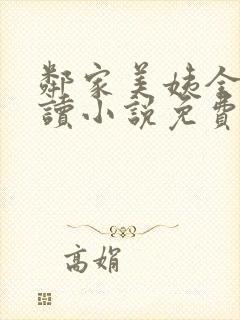 鄰家美姨全
讀小說免費
高娟